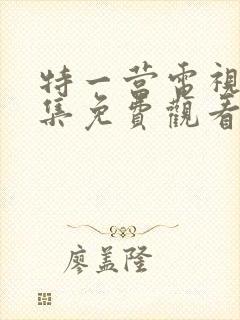 特一营電視
集免費觀看
廖盖隆